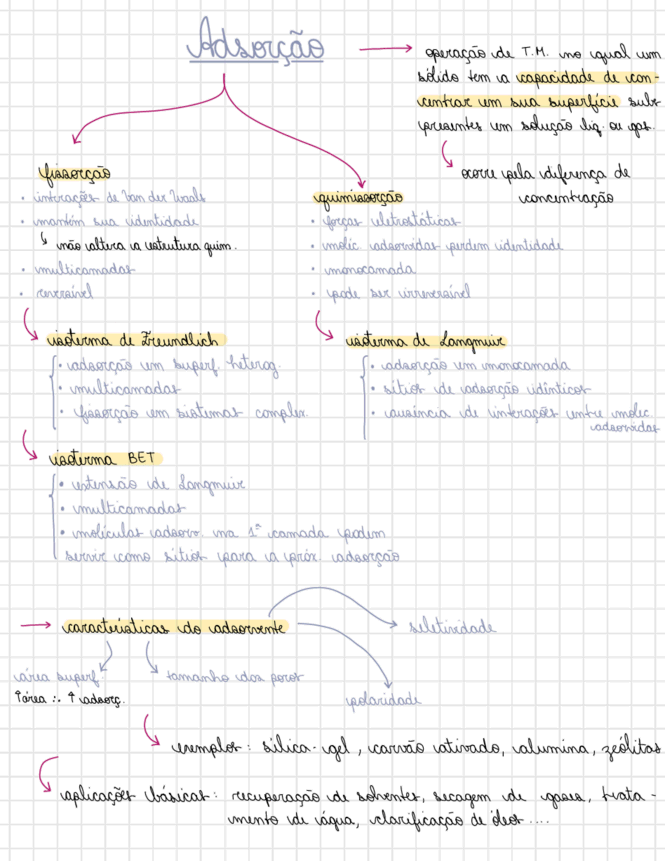 Adsorção
operação de T.M. no qual um
sólido tem a capacidade de con-
centrar em sua superfície subs
presentes em solução liq. ou gas.
ocorre pela diferença de
concentração
fissorção
• interações de Van der Waals
• mantém sua identidade
não altera a estrutura quim.
• multicamadas
• reversível
quimissorção
• forças eletrostáticas
• molec. adsorvidas perdem identidade
• monocamada
• pode ser irreversível
isoterma de Freundlich
• adsorção em superf. heterog.
• multicamadas
• fissorção em sistemas complex.
isoterma de Langmuir
• adsorção em monocamada
• sítios de adsorção idênticos
• ausência de interações entre molec.
adsorvidas
isoterma BET
• extensão de Langmuir
• multicamadas
• moléculas adsorv. na 1ª camada podem
servir como sítios para a próx. adsorção
características do adsorvente
seletividade
área superf.
↑área ∴ ↑ adsorç.
tamanho dos poros
polaridade
exemplos: sílica-gel, carvão ativado, alumina, zeólitas
aplicações básicas: recuperação de solventes, secagem de gases, trata-
mento de água, clarificação de óleos ....